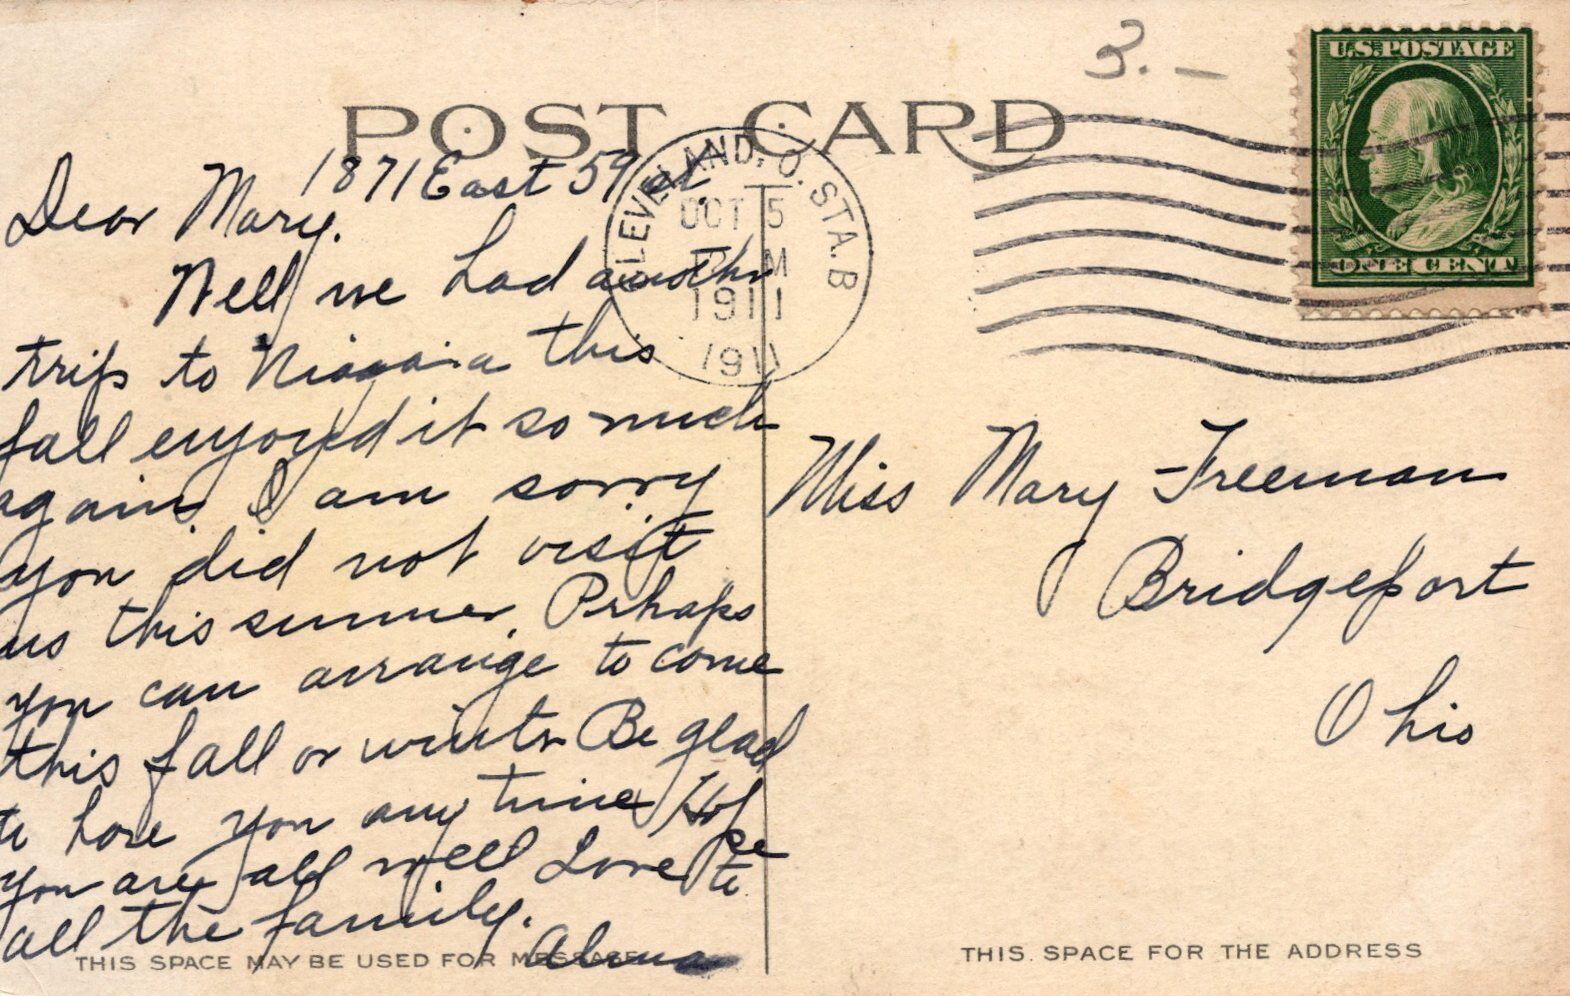 POST CARD
3.—
U.S. POSTAGE
ONE CENT
CLEVELAND, O. STA. B
OCT 5
PM
1911
1911
1871 East 59 st.
Dear Mary.
Well we had another
trip to Niagara this
fall enjoyed it so much
again. I am sorry
you did not visit
us this summer. Perhaps
you can arrange to come
this fall or winter Be glad
to have you any time Hope
you are all well Love to
all the family.
Alma
Miss Mary Freeman
Bridgeport
Ohio
THIS SPACE MAY BE USED FOR MESSAGE
THIS SPACE FOR THE ADDRESS